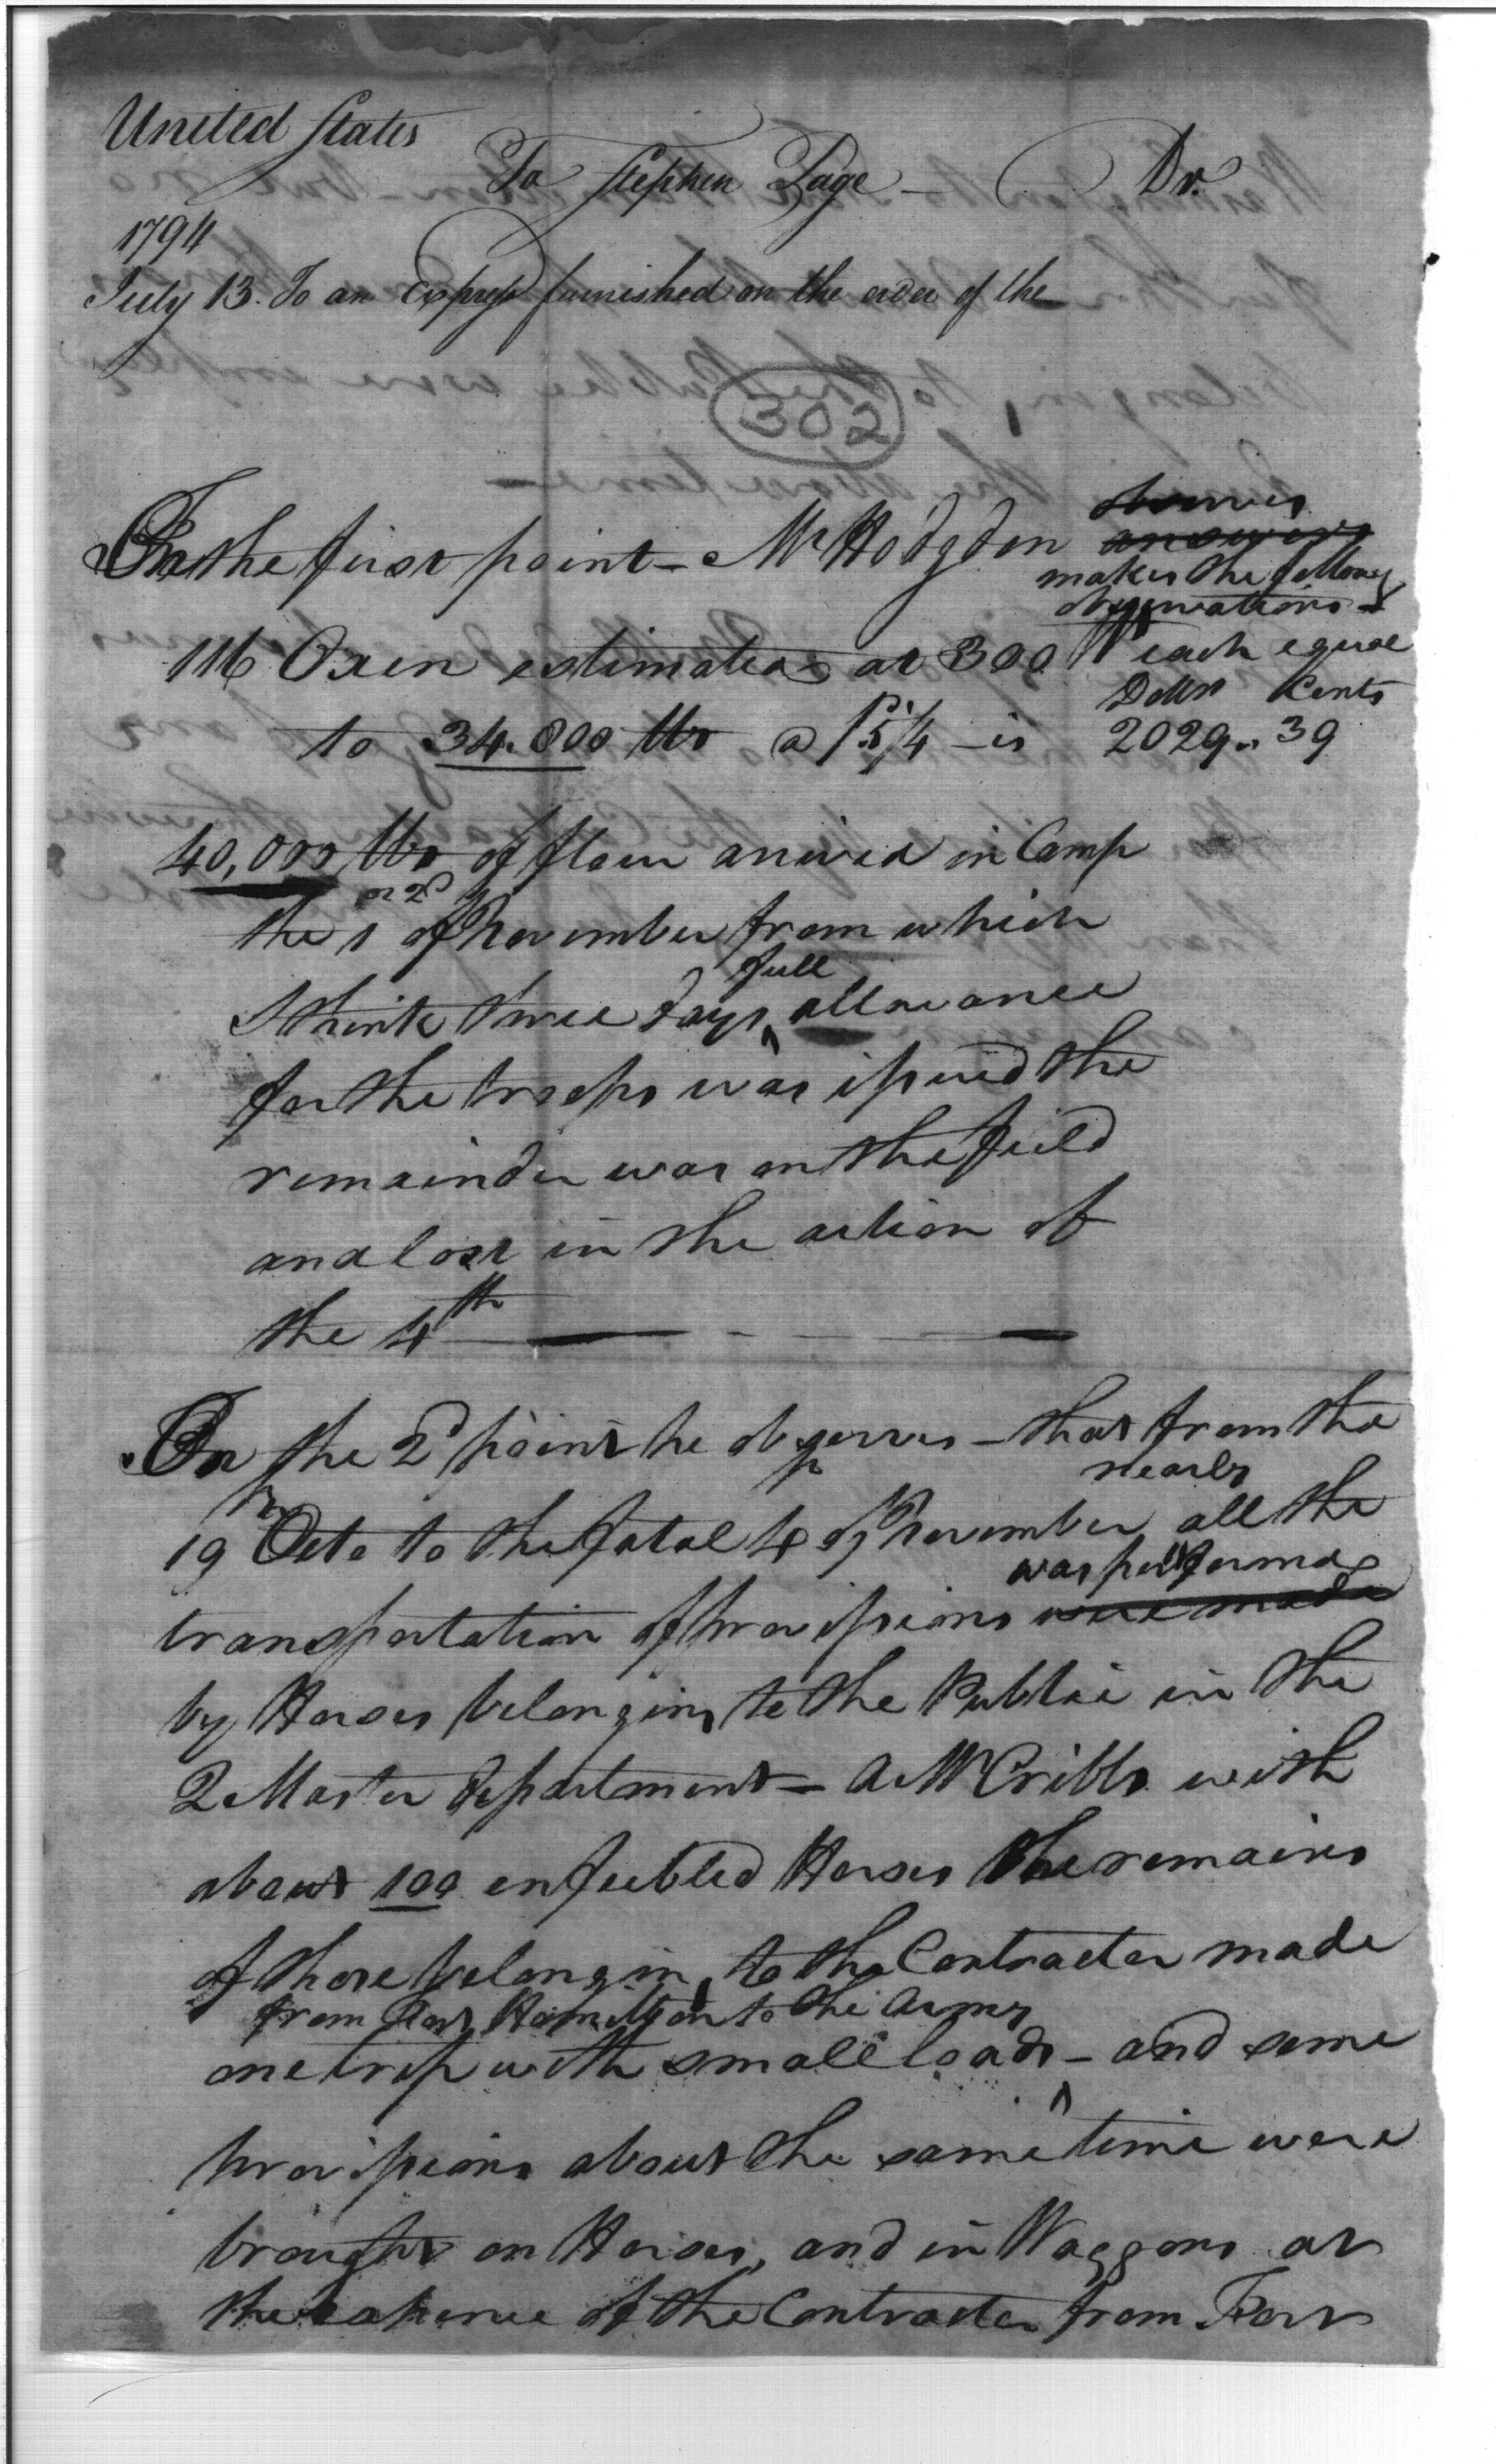 United States
To Stephen Page — Dr.
1794
July 13. To an Express furnished on the order of the
302
observes
On the first point — Mr Hodgdon answers
makes the following
observations —
116 Oxen estimated at 300 lb each equal
Dollrs Cents
to 34.800 lbs @ 5/4 — is 2029 .. 39
40,000 lbs of flour arrived in Camp
or 2d
the 1 of November from which
full
I think three days allowance
for the troops was issued the
remainder was on the field
and lost in the action of
the 4th
On the 2d point he observes — that from the
nearly
19th Octo to the fatal 4 of November all the
was performed
transportation of provisions were made
by Horses belonging to the Public in the
Q Master department — A Mr Cribbs with
about 100 enfeebled Horses the remains
of those belonging to the Contractor made
from Fort Hamilton to the Army
one trip with small loads — and some
provisions about the same time were
brought on Horses, and in Waggons at
the expence of the Contractor from Fort